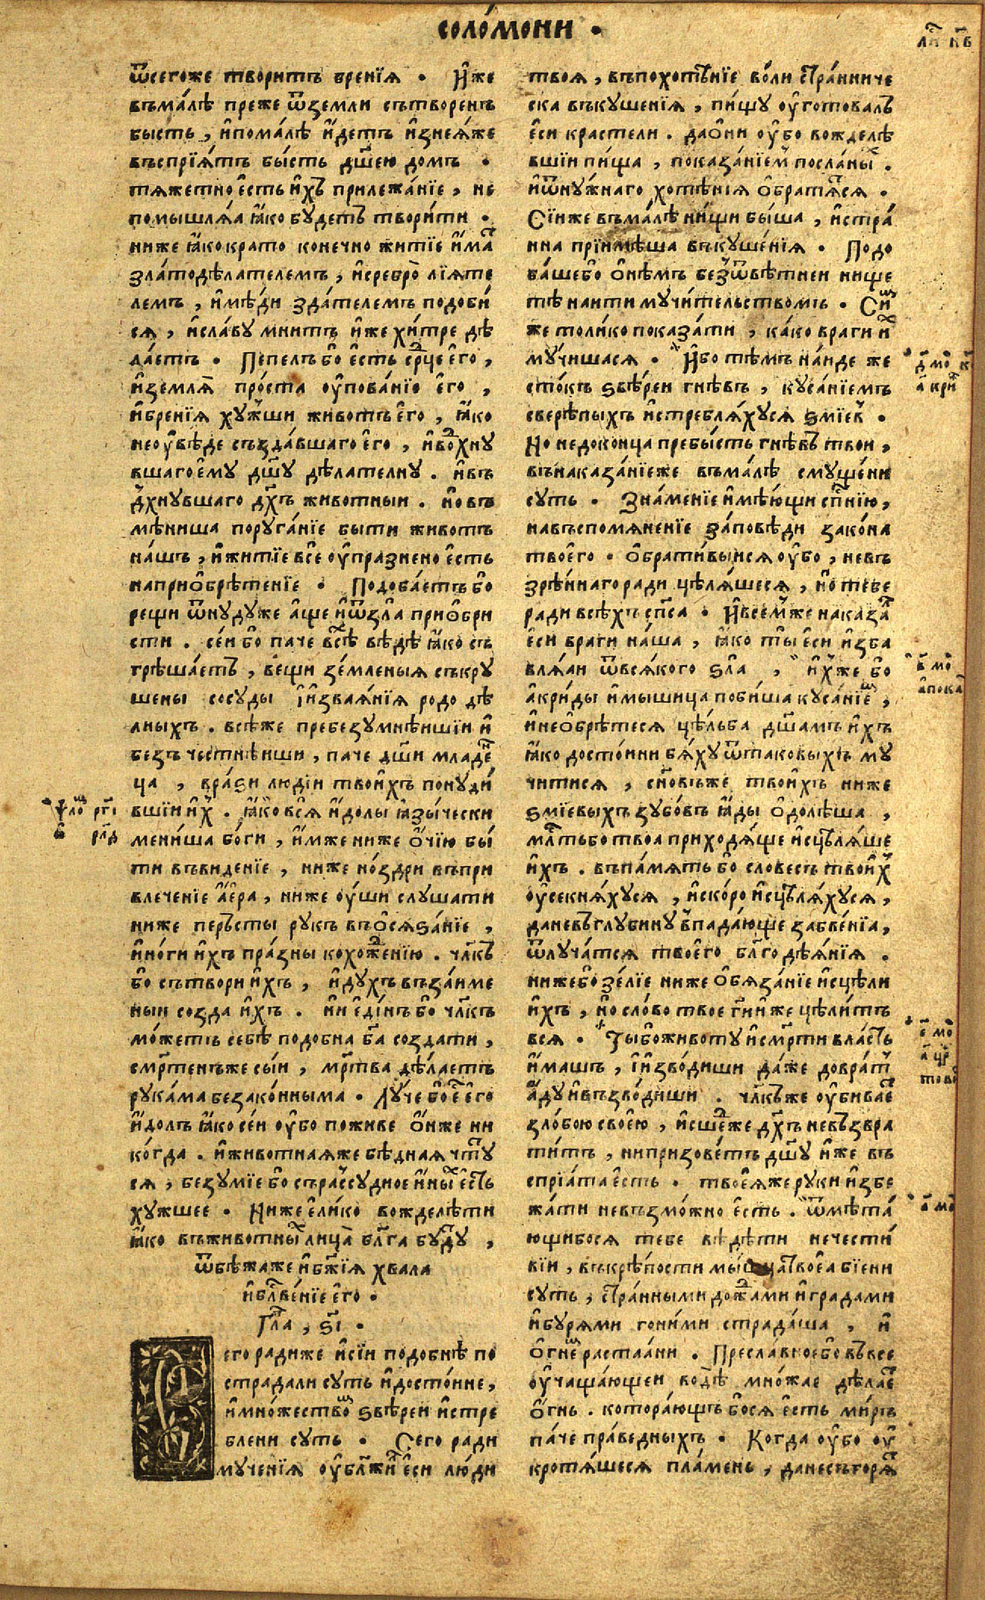 соло́мони .
ѿсегоже творитъ бренїѧ . И҆же
въма́лѣ преже ѿземли сътворенъ
бысть , и҆пома́лѣ и҆детъ и҆знеѧ́же
въспрїѧ́тъ бы́сть дш҃ею домъ .
тѧжетно є҆сть и҆хъ прилежа́нїе , не
помышлѧ́а ꙗ҆ко будетъ твори́ти .
ниже ꙗ҆кократо конечно житїе и҆ма
зла́тодѣлателемъ , и҆сребро̀ лїѧте
лемъ , и҆мѣ́ди зда́телемъ подоби́
сѧ , и҆сла́ву мнитъ и҆же хи́тре дѣ
лаетъ . Пепелъ бо є҆сть ср҃це є҆го ,
и҆землѧ̀ про́ста оу҆пова́нїю є҆го ,
и҆бренїѧ ху́жши животъ є҆го , ꙗ҆ко
неоу҆вѣде създа́вшаго є҆го , и҆вдохну
вшаго є҆му дш҃у дѣлателну . и҆въ
дхнувшаго дх҃ъ животныи . но въ
мѣниша поруга́нїе быти животъ
на́шъ , и҆житїе все оу҆празнено є҆сть
наприѻбрѣтенїе . Подоба́етъ бо
рещи ѿнудуже а҆ще и҆ѿзла приѻбри
сти . се́и бо паче всѣ́ вѣ́дѣ ꙗ҆ко съ
грѣша́етъ , ве́щи зе́мленыѧ съкру
шены сосуды і҆и҆зваѧ́нїѧ родо дѣ
лныхъ . всѣ́же пребезумнѣишїи и҆
безъ че́стнѣиши , паче дш҃и младе
ца , вра́ѕи людїи твои҆хъ пону́ди
вшїи и҆х . ꙗ҆ко всѧ и҆долы ꙗ҆зы́чески
мени́ша бо́ги , и҆мже ниже ѻ҆чїю бы́
ти въвиденїе , ниже но́здри въпри
влеченїе а҆е́ра , ниже оу҆ши слушати
ниже перьсты рукъ въѻсѧѕа́нїе ,
и҆ноги и҆хъ пра́зны кохоженїю . чл҃къ
бо сътвори и҆хъ , и҆духъ въза́име
ныи созда и҆хъ . ни є҆ди́нъ бо чл҃къ
мо́жеть себѣ̀ подобна бг҃а созда́ти ,
см҃ртенъже сы́и , мр҃тва дѣ́лаетъ
рука́ма безако́нныма . Луче бо є҆ є҆го
и҆долъ ꙗ҆ко се́и оу҆бо поживе ѻ҆ниже ни
ко́гда . и҆животнаѧже бѣднаѧ чту
сѧ , безумїе бо съра́ссудное и҆ны є҆сть
хужшее . Ниже є҆ли́ко вожделѣти
ꙗ҆ко въживо́тны лица̀ бл҃га буду ,
ѿбѣжаже и҆бж҃їѧ хвала
и҆блг҃ве́нїе є҆го .
Гла , ѕ҃і .
Сего радиже и҆сїи подобнѣ по
страдали суть и҆досто́ине ,
и҆мно́жество ѕвѣреи и҆стре
блени суть . Сего ради
мученїѧ оу҆блажи є҆си лю́ди
твоѧ , въпохотѣнїе во́ли стра́нниче
ска въкушенїѧ , пи́щу оу҆готовалъ
є҆си крастели . даѻни оу҆бо вожделѣ
вшїи пи́ща , показа́нїем посланы́ .
и҆ѿну́жнаго хотѣнїѧ ѻ҆братѧ́сѧ .
Сїи́же въма́лѣ ни́щи бы́ша , и҆стра́
нна прїимѣша въкуше́нїѧ . Подо
ба́шебо ѻ҆нѣмъ безъѿвѣтнеи нище
тѣ наити мучи́тельствомъ . Си́
же толи́ко показа́ти , ка́ко враги и҆
му́чишасѧ . И҆бо тѣмъ на́иде же
сто́къ ѕвѣ́реи гнѣ́въ , куса́нїемъ
сверѣпыхъ и҆стреблѧ́хусѧ ѕмїев .
Но недоконца пребы́сть гнѣвъ твои ,
внаказа́нїеже въма́лѣ смуще́ни
суть . Зна́менїе и҆мѣ́ющи сп҃нїю ,
навъспомѧненїе за́повѣди зако́на
твоего . ѻ҆брати́выисѧ оу҆бо , невъ
зрѣ́ннаго ради цѣлѧ́шесѧ , но тебе
ради всѣхъ сп҃са . И҆всемже наказа
є҆си враги на́ша , ꙗ҆ко ты є҆си и҆зба
влѧ́аи ѿвсѧкого ѕла , и҆хже бо
а҆кри́ды и҆мышица поби́ша куса́нїе ,
и҆неѻбрѣтесѧ цѣ́льба дш҃а́мъ и҆хъ
ꙗ҆ко досто́ини бѧ́ху ѿтаковыхъ му
читисѧ , сн҃овѣже твои҆хъ ниже
ѕмїевыхъ зубо́въ ꙗ҆ды ѻ҆долѣша ,
мл҃ть бо твоа приходѧ́ще и҆сцѣлѧ́ше
и҆хъ . въпа́мѧть бо словесъ твои҆х
оу҆секнѧ́хусѧ , и҆ско́ро и҆сцѣлѧ́хусѧ ,
даневъглубину̀ впада́юще забвенїа ,
ѿлуча́тсѧ твоего бл҃годѣѧ́нїѧ .
нижебо зе́лїе ниже ѻ҆бѧза́нїе и҆сцѣли
и҆хъ , но сло́во твое гн҃иже цѣли́тъ
всѧ . Ты бо животу и҆см҃рти вла́сть
и҆машъ , і҆и҆зво́диши да́же довратъ
а҆ду и҆възво́диши . чл҃къже оу҆бивае
зло́бою свое́ю , и҆сшеже дх҃ъ невъзвра
ти́тъ , нипризове́тъ дш҃у и҆же въ
спрїѧта є҆сть . твоеѧ́же руки и҆збе
жа́ти невъзмо́жно є҆сть . ѿмѣта́
ющибосѧ тебе вѣдѣти нечести́
вїи , въкрѣ́пости мы́шца твоеа бїени
суть , стра́нными дождами и҆градами
и҆бурѧми гоними страда́ша , и҆
ѻ҆гнем растлаа́ни . Пресла́вноебо въвсе
оу҆чаща́ющеи водѣ мно́жае дѣлае
ѻ҆гнь . котора́ющъ босѧ є҆сть миръ
па́че пра́ведныхъ . Когда оу҆бо оу҆
кротѧ́шесѧ пла́мень , данесъгорѧ